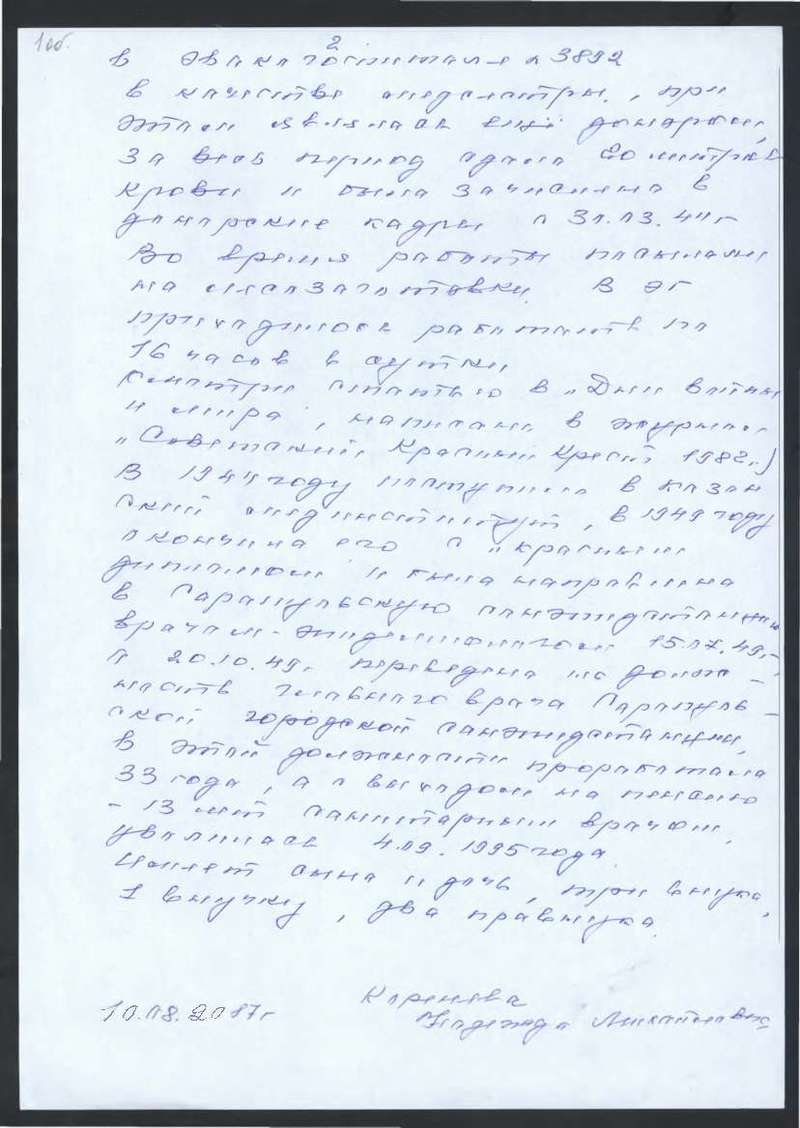 1об.
2
в эвакогоспитале № 3892
в качестве медсестры, при
этом являлась ещё донором,
за весь период сдала литров
крови и была зачислена в
донорские кадры с 31.03.44г
Во время работы посылали
на лесозаготовки. В эг
приходилось работать по
16 часов в сутки
(смотри статью в „Дни войны
и мира", написано в журнале
„Советский Красный Крест 1982г.)
В 1944 году поступила в Казан
ский мединститут, в 1949 году
окончила его с „красным
дипломом и была направлена
в Сарапульскую санэпидстанцию
врачом-эпидемиологом 15.07.49г.,
а 20.10.49г переведена на долж-
ность главного врача Сарапуль-
ской городской санэпидстанции,
в этой должности проработала
33 года, а с выходом на пенсию
- 13 лет санитарным врачом,
уволилась 4.09.1995 года.
Имеет сына и дочь, три внука,
1 внучку, два правнука.
Коренева
10.08.2007г Надежда Михайловна